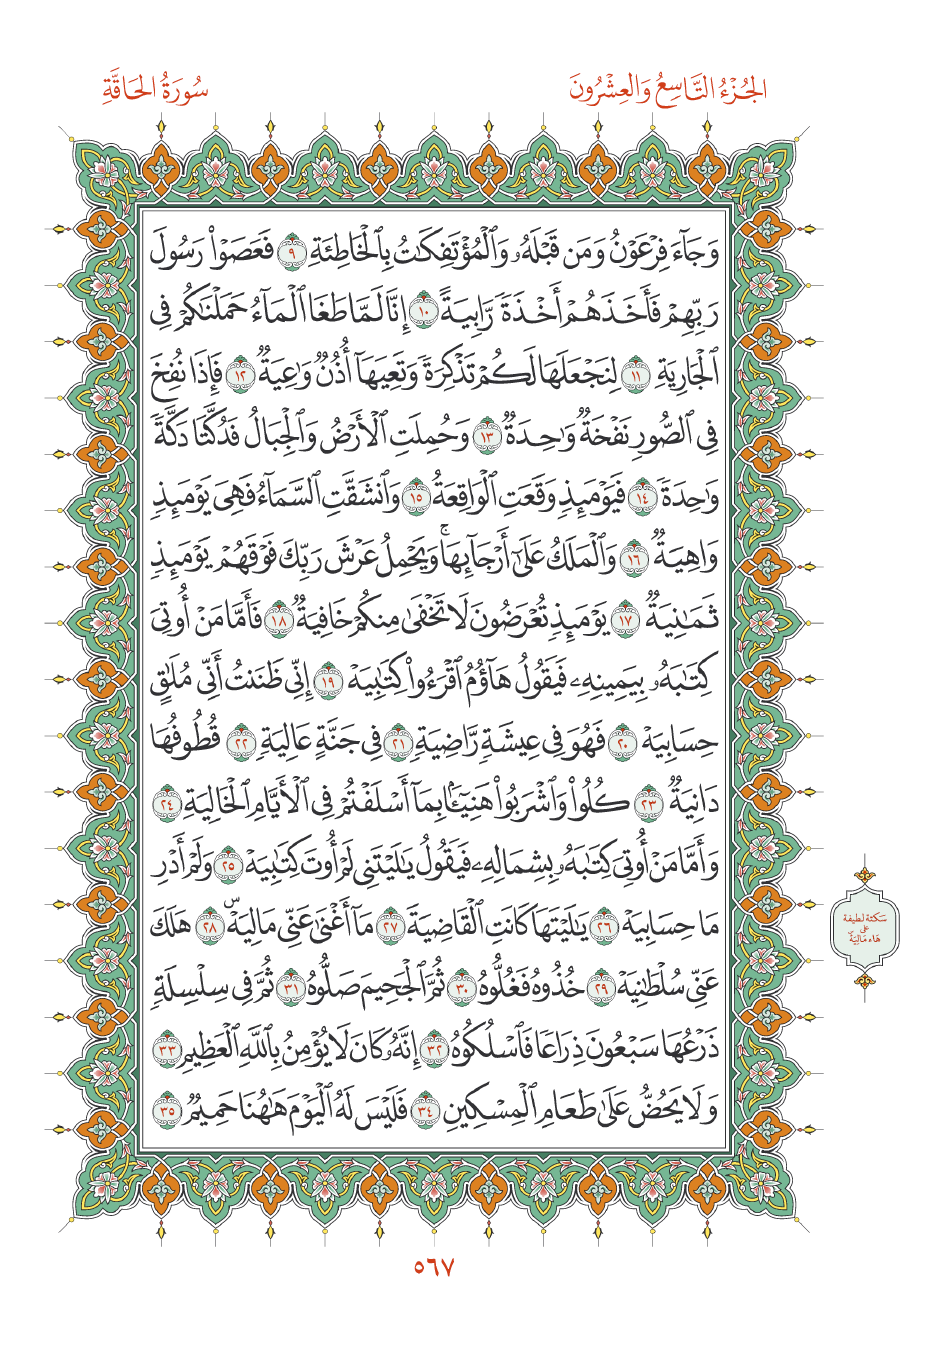 الجُزْءُ التَّاسِعُ وَالعِشْرُونَ
سُورَةُ الحَاقَّةِ
وَجَآءَ فِرْعَوْنُ وَمَن قَبْلَهُۥ وَٱلْمُؤْتَفِكَٰتُ بِٱلْخَاطِئَةِ ٩ فَعَصَوْا۟ رَسُولَ
رَبِّهِمْ فَأَخَذَهُمْ أَخْذَةً رَّابِيَةً ١٠ إِنَّا لَمَّا طَغَا ٱلْمَآءُ حَمَلْنَٰكُمْ فِى
ٱلْجَارِيَةِ ١١ لِنَجْعَلَهَا لَكُمْ تَذْكِرَةً وَتَعِيَهَآ أُذُنٌ وَٰعِيَةٌ ١٢ فَإِذَا نُفِخَ
فِى ٱلصُّورِ نَفْخَةٌ وَٰحِدَةٌ ١٣ وَحُمِلَتِ ٱلْأَرْضُ وَٱلْجِبَالُ فَدُكَّتَا دَكَّةً
وَٰحِدَةً ١٤ فَيَوْمَئِذٍ وَقَعَتِ ٱلْوَاقِعَةُ ١٥ وَٱنشَقَّتِ ٱلسَّمَآءُ فَهِىَ يَوْمَئِذٍ
وَاهِيَةٌ ١٦ وَٱلْمَلَكُ عَلَىٰٓ أَرْجَآئِهَاۚ وَيَحْمِلُ عَرْشَ رَبِّكَ فَوْقَهُمْ يَوْمَئِذٍ
ثَمَٰنِيَةٌ ١٧ يَوْمَئِذٍ تُعْرَضُونَ لَا تَخْفَىٰ مِنكُمْ خَافِيَةٌ ١٨ فَأَمَّا مَنْ أُوتِىَ
كِتَٰبَهُۥ بِيَمِينِهِۦ فَيَقُولُ هَآؤُمُ ٱقْرَءُوا۟ كِتَٰبِيَهْ ١٩ إِنِّى ظَنَنتُ أَنِّى مُلَٰقٍ
حِسَابِيَهْ ٢٠ فَهُوَ فِى عِيشَةٍ رَّاضِيَةٍ ٢١ فِى جَنَّةٍ عَالِيَةٍ ٢٢ قُطُوفُهَا
دَانِيَةٌ ٢٣ كُلُوا۟ وَٱشْرَبُوا۟ هَنِيٓـًٔۢا بِمَآ أَسْلَفْتُمْ فِى ٱلْأَيَّامِ ٱلْخَالِيَةِ ٢٤
وَأَمَّا مَنْ أُوتِىَ كِتَٰبَهُۥ بِشِمَالِهِۦ فَيَقُولُ يَٰلَيْتَنِى لَمْ أُوتَ كِتَٰبِيَهْ ٢٥ وَلَمْ أَدْرِ
مَا حِسَابِيَهْ ٢٦ يَٰلَيْتَهَا كَانَتِ ٱلْقَاضِيَةَ ٢٧ مَآ أَغْنَىٰ عَنِّى مَالِيَهْۜ ٢٨ هَلَكَ
عَنِّى سُلْطَٰنِيَهْ ٢٩ خُذُوهُ فَغُلُّوهُ ٣٠ ثُمَّ ٱلْجَحِيمَ صَلُّوهُ ٣١ ثُمَّ فِى سِلْسِلَةٍ
ذَرْعُهَا سَبْعُونَ ذِرَاعًا فَٱسْلُكُوهُ ٣٢ إِنَّهُۥ كَانَ لَا يُؤْمِنُ بِٱللَّهِ ٱلْعَظِيمِ ٣٣
وَلَا يَحُضُّ عَلَىٰ طَعَامِ ٱلْمِسْكِينِ ٣٤ فَلَيْسَ لَهُ ٱلْيَوْمَ هَٰهُنَا حَمِيمٌ ٣٥
سكتة لطيفة
على
هَاء مَالِيَهْۜ
٥٦٧